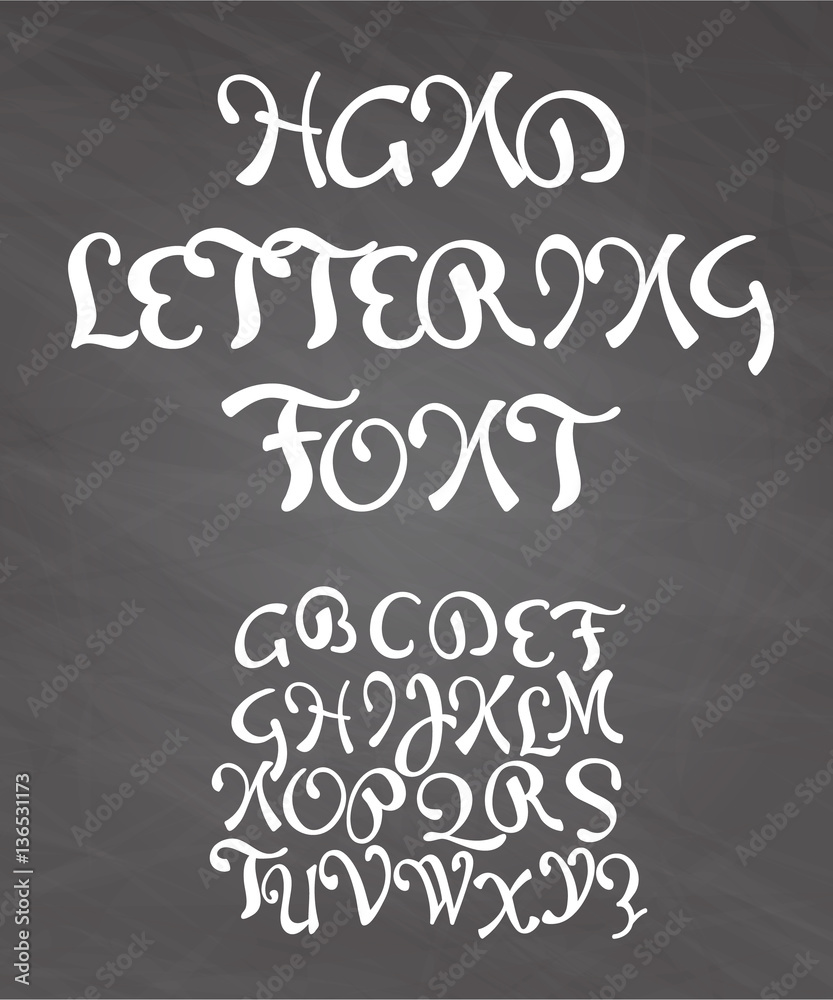 HAND
LETTERING
FONT
A B C D E F
G H I J K L M
N O P Q R S
T U V W X Y Z
Adobe Stock | #136531173